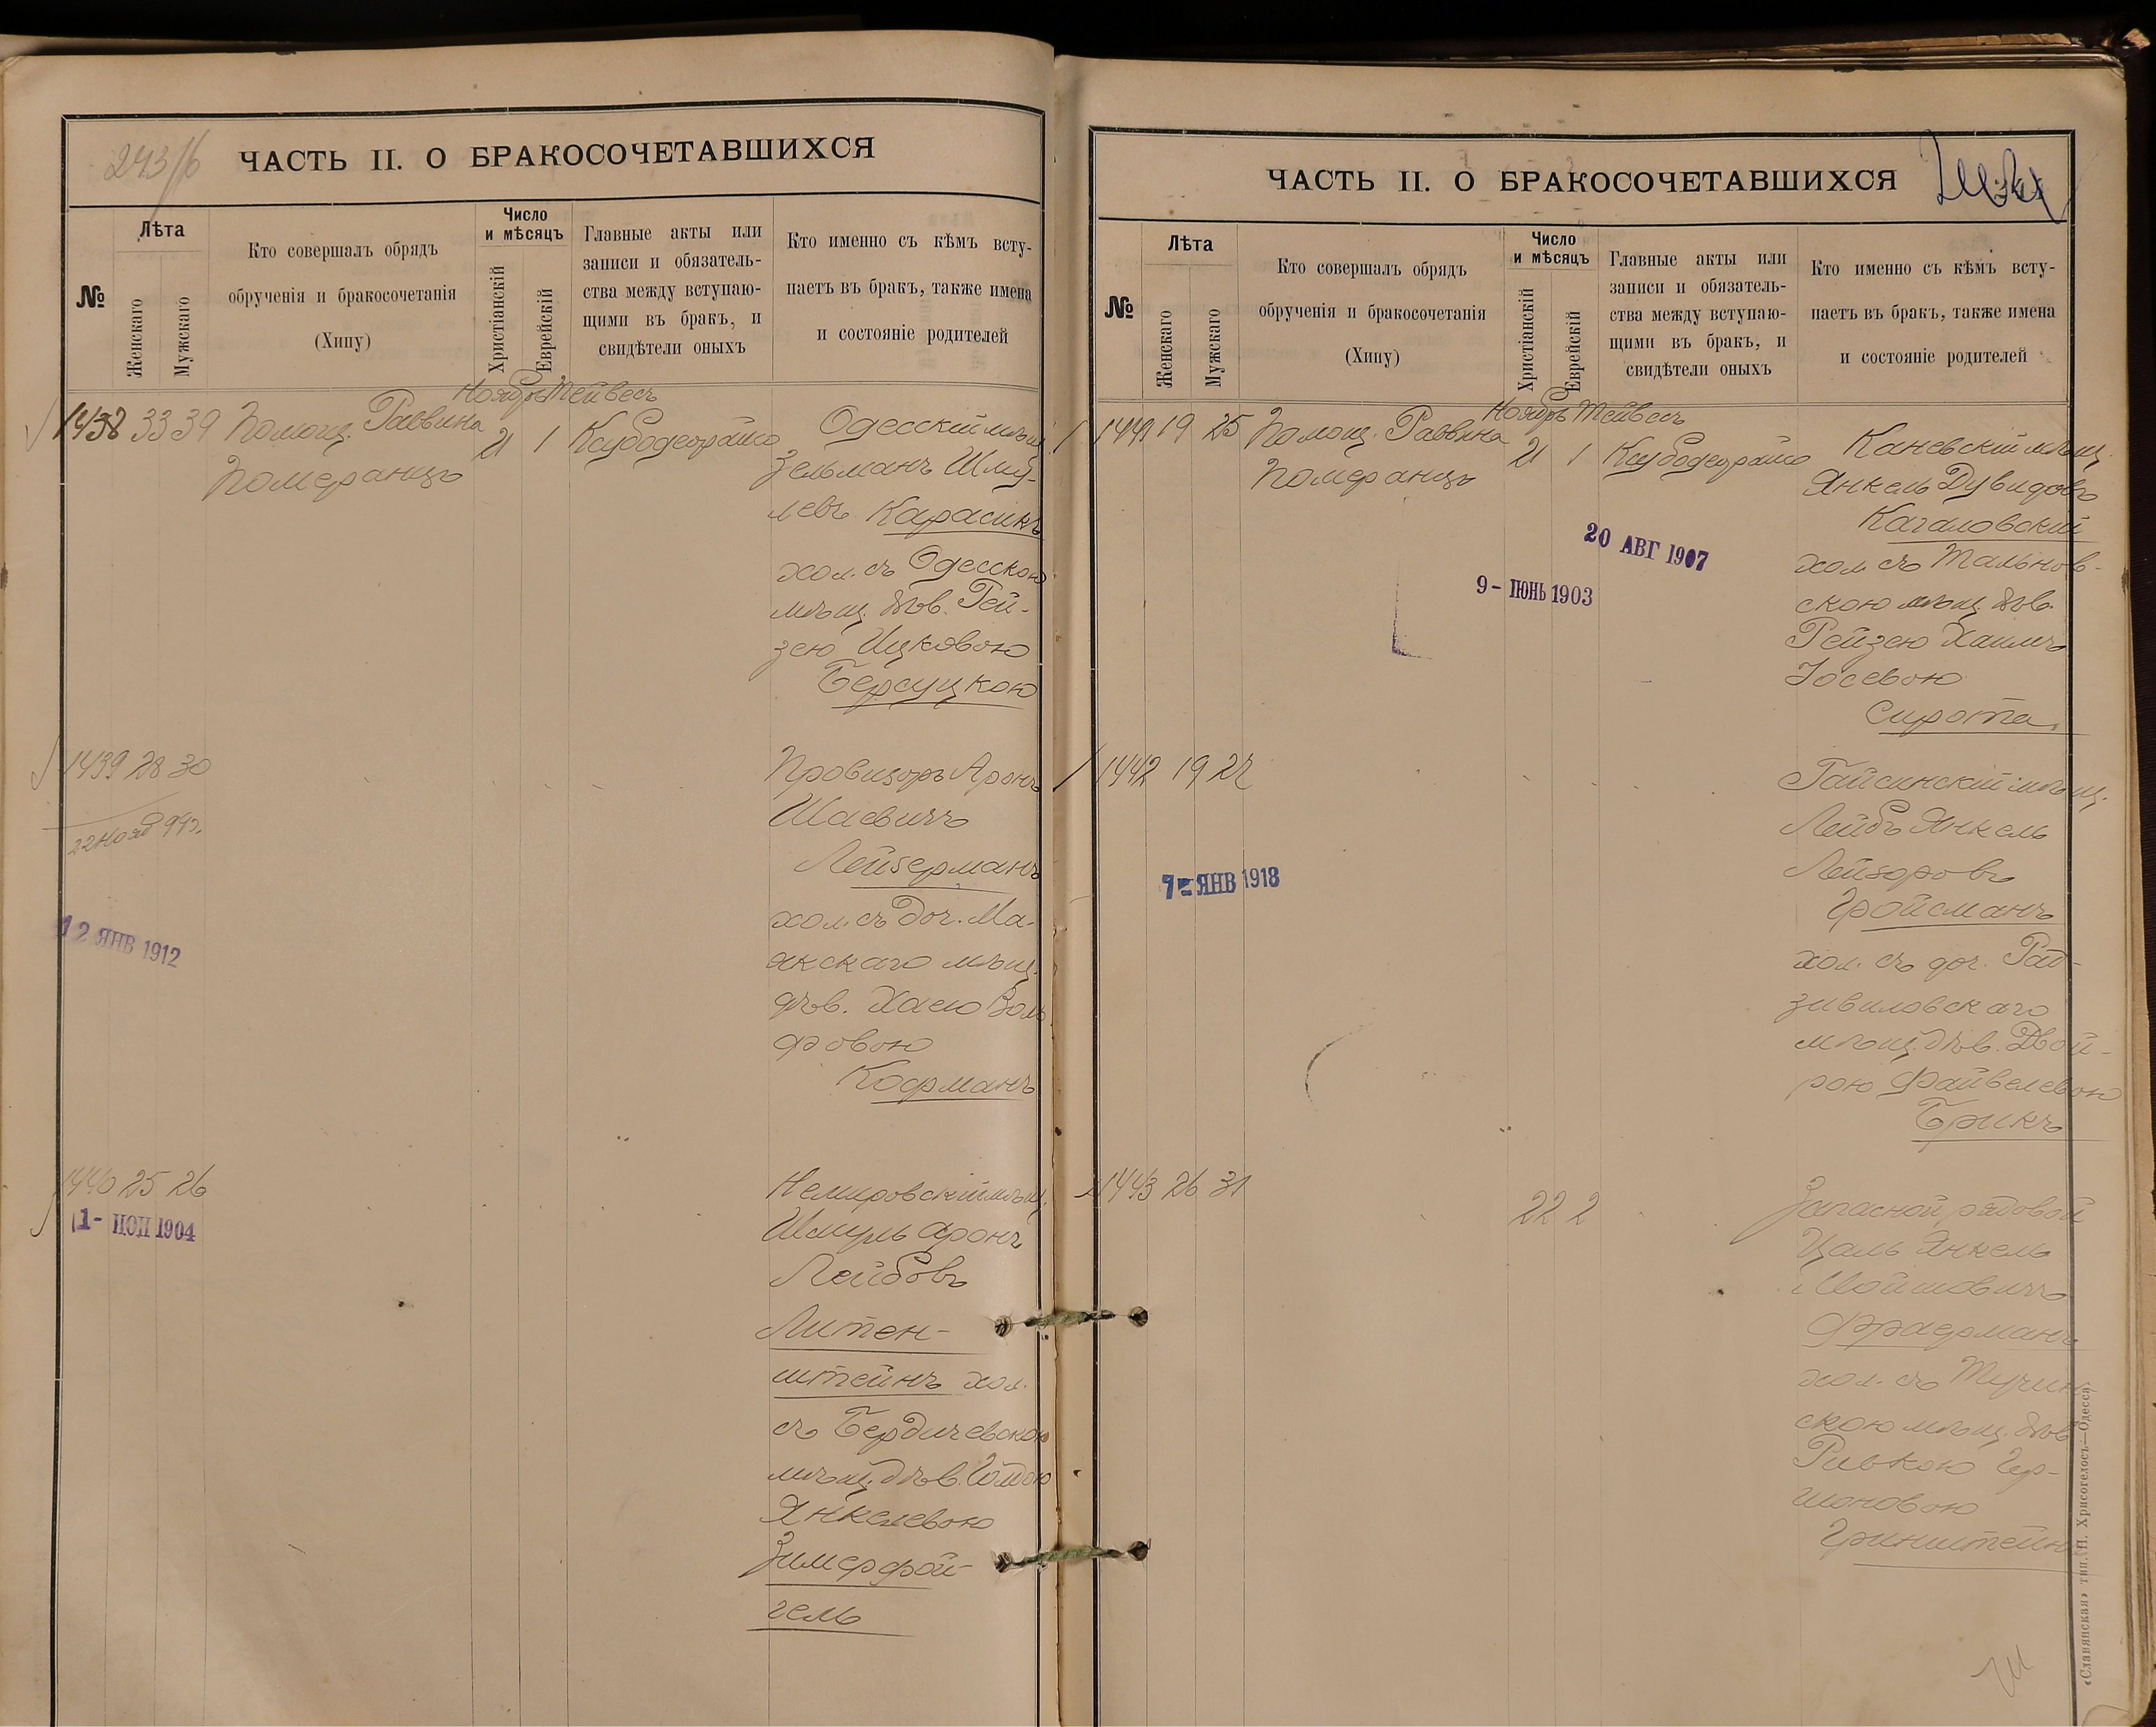 243/6
ЧАСТЬ II. О БРАКОСОЧЕТАВШИХСЯ
№
Лѣта
Женскаго
Мужскаго
Кто совершалъ обрядъ
обрученія и бракосочетанія
(Хипу)
Число
и мѣсяцъ
Христіанскій
Еврейскій
Главные акты или
записи и обязатель-
ства между вступаю-
щими въ бракъ, и
свидѣтели оныхъ
Кто именно съ кѣмъ всту-
паетъ въ бракъ, также имена
и состояніе родителей
Ноябрь Тейвесъ
1438 33 39 Помощ. Раввина 21 1
Померанцъ
Одесскій мѣщ.
Зельманъ Шму-
левъ Карасикъ
хол. съ Одесскою
мѣщ. дѣв. Рей-
зею Ицковою
Берсуцкою
1439 28 30
22 Нояб 99г.
12 ЯНВ 1912
Провизоръ Аронъ
Шаевичъ
Лейзерманъ
хол. съ доч. Ма-
якскаго мѣщ.
дѣв. Хасею Воль
фовою
Кофманъ
1440 25 26
1- ИОЛ 1904
Немировскій мѣщ.
Шмуль Аронъ
Лейбовъ
Литен-
штейнъ хол.
съ Бердичевскою
мѣщ. дѣв. Голдою
Янкелевою
Зимерфой-
гель
ЧАСТЬ II. О БРАКОСОЧЕТАВШИХСЯ
№
Лѣта
Женскаго
Мужскаго
Кто совершалъ обрядъ
обрученія и бракосочетанія
(Хипу)
Число
и мѣсяцъ
Христіанскій
Еврейскій
Главные акты или
записи и обязатель-
ства между вступаю-
щими въ бракъ, и
свидѣтели оныхъ
Кто именно съ кѣмъ всту-
паетъ въ бракъ, также имена
и состояніе родителей
Ноябрь Тейвесъ
1441 19 25 Помощ. Раввина 21 1
Померанцъ
20 АВГ 1907
9- ІЮНЬ 1903
Каневскій мѣщ.
Янкель Дувидовъ
Кагаловскій
хол. съ Тальнов-
скою мѣщ. дѣв.
Рейзею Хаимъ
Іосевою
Сирота
1442 19 27
7- ЯНВ 1918
Гайсинскій мѣщ.
Лейбъ Янкель
Лейзоровъ
Гройсманъ
хол. съ доч. Рад-
зивиловскаго
мѣщ. дѣв. Двой-
рою Файвелевою
Брикъ
1443 26 31 22 2
Запасной рядовой
Цаль Янкель
Мойшовичъ
Фраерманъ
хол. съ Тучин
скою мѣщ. дѣв
Ривкою Гер-
шоновою
Гринштейнъ
«Славянская» тип. Н. Хрисогелосъ—Одесса.